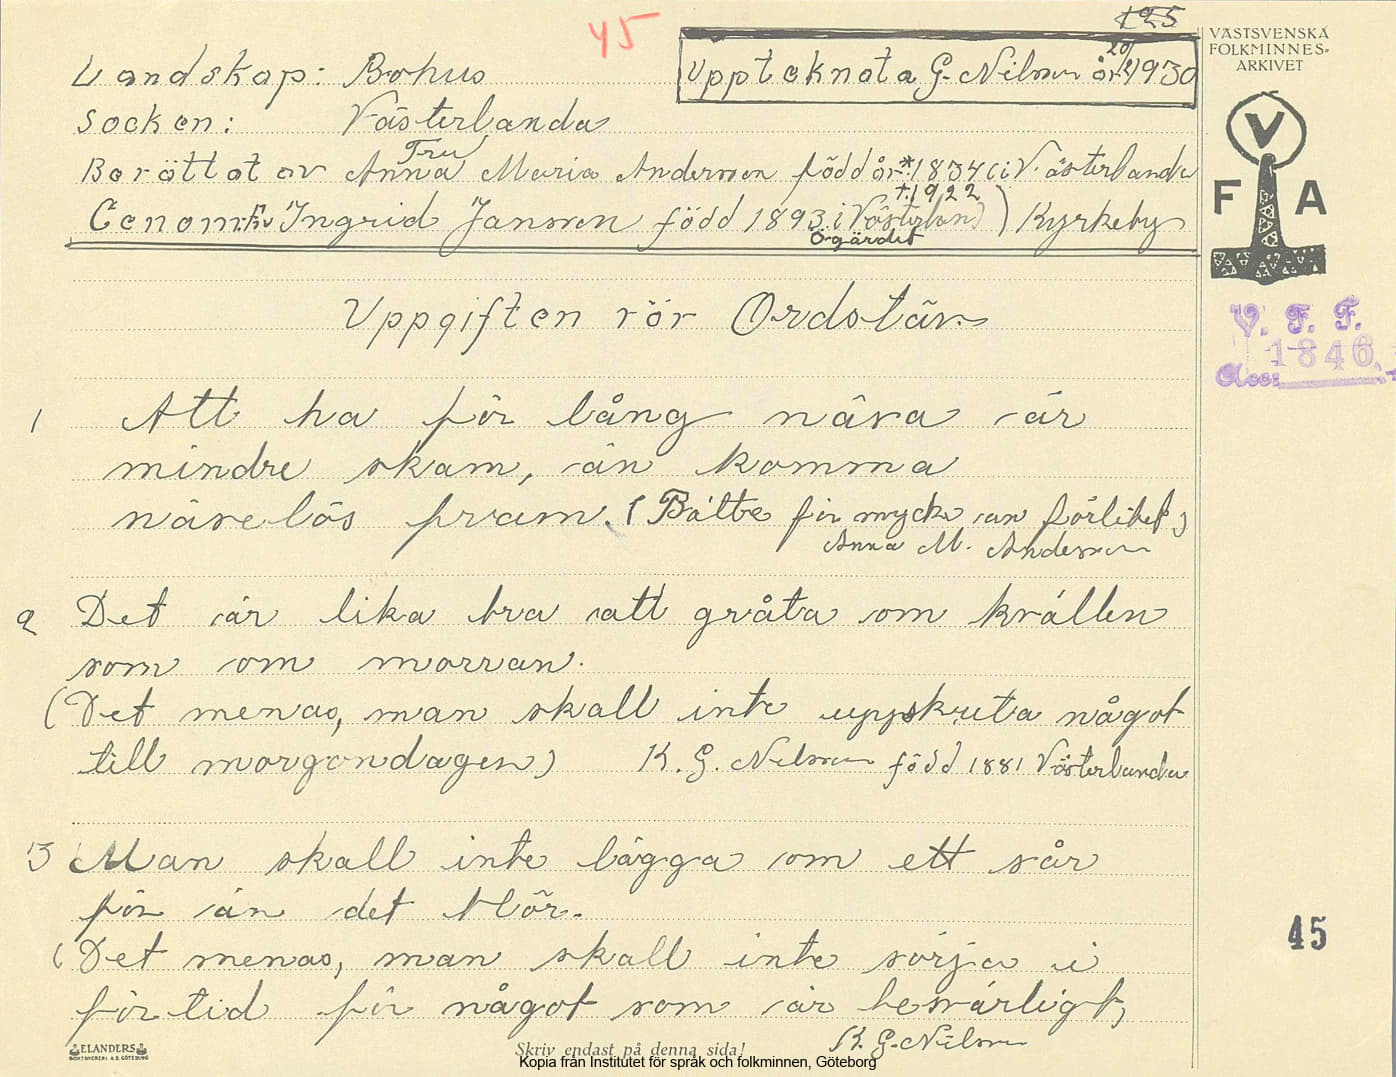 45
125
VÄSTSVENSKA
FOLKMINNES-
ARKIVET
Landskap: Bohus
Upptoknota G. Nilsson år 20/2 1930
Socken: Västerlanda
Berättat av Fru Anna Maria Andersson född år *1834 i Västerlanda
†.1922
Genom: Fru Ingrid Jansson född 1893 i Västerlanda) Kyrkeby
Ögärdet
V
F A
Uppgiften rör Ordstäv.
V. F. F.
1846
Acc:
1 Att ha för lång näsa är
mindre skam, än komma
näselös fram. (Bätte för mycke än förlitet)
Anna M. Andersson
2 Det är lika bra att gråta om kvällen
som om morran.
(Det menas, man skall inte uppskuta något
till morgondagen) K. G. Nilsson född 1881 Västerlanda
3 Man skall inte lägga om ett sår
för än det blör.
(Det menas, man skall inte sörja i
förtid för något som är besvärligt)
K. G. Nilsson
45
ELANDERS
BOKTRYCKERI A.B. GÖTEBORG
Skriv endast på denna sida!
Kopia från Institutet för språk och folkminnen, Göteborg